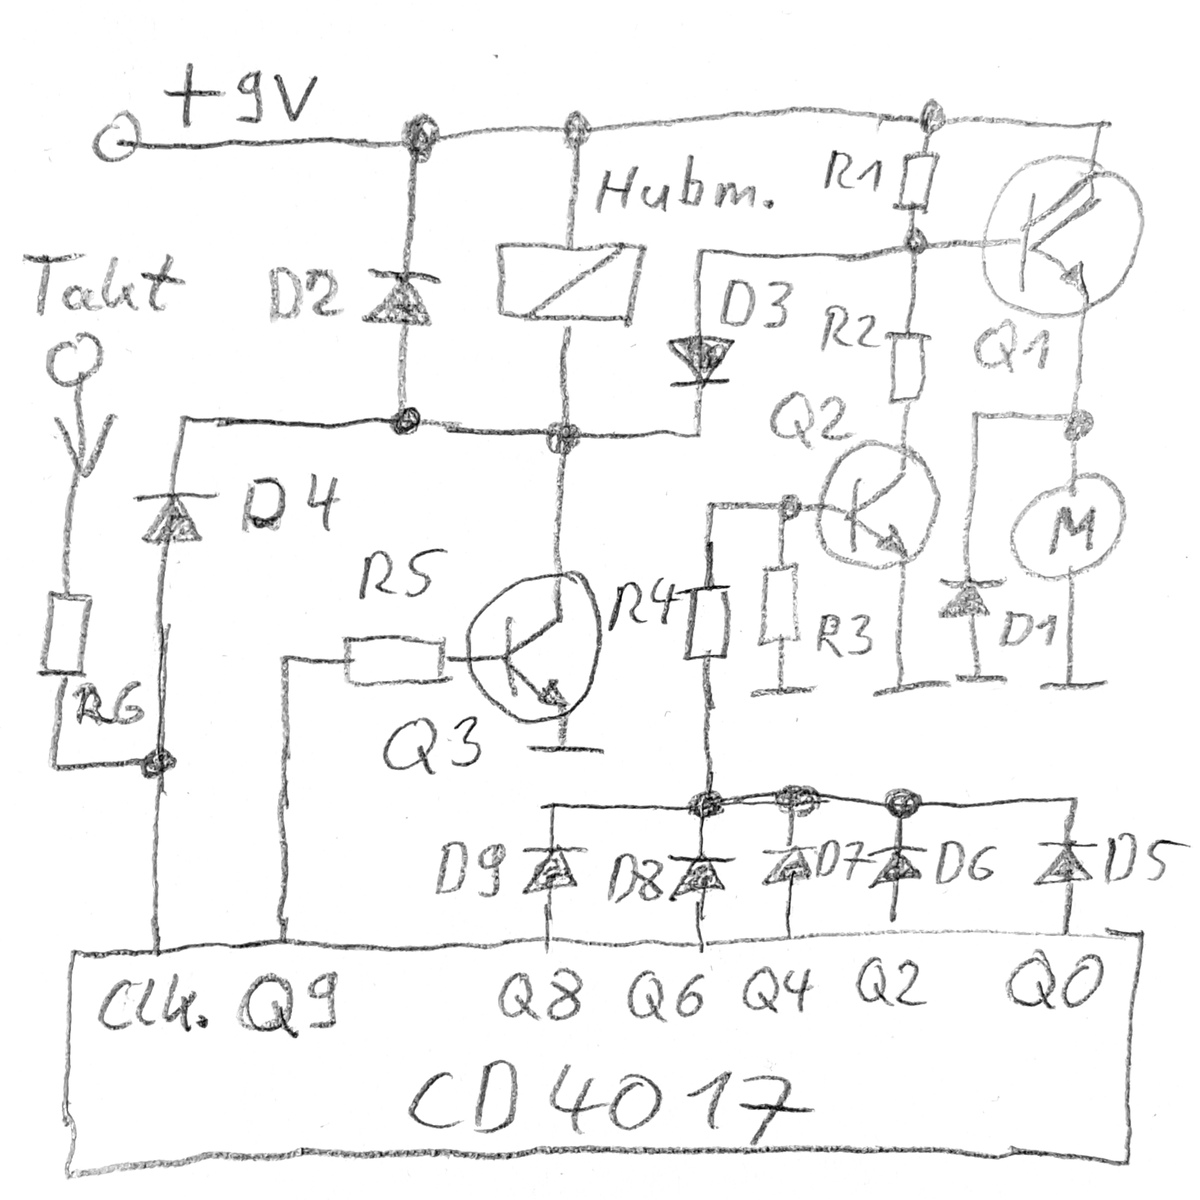 +9V
Hubm.
R1
Takt
D2
D3
R2
Q1
Q2
D4
M
R5
R4
R3
D1
R6
Q3
D9
D8
D7
D6
D5
Clk.
Q9
Q8
Q6
Q4
Q2
Q0
CD4017